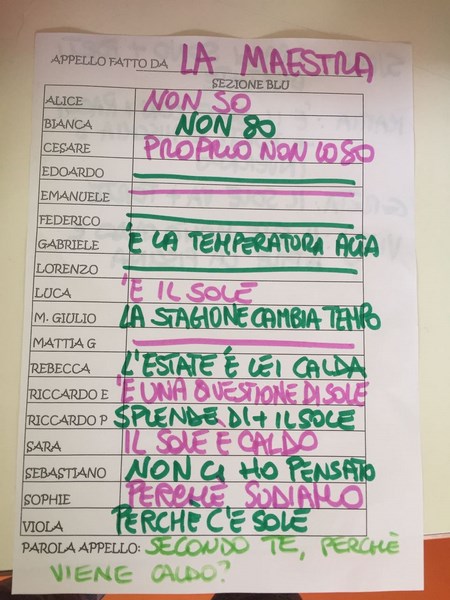 APPELLO FATTO DA LA MAESTRA
SEZIONE BLU
ALICE NON SO
BIANCA NON SO
CESARE PROPRIO NON LO SO
EDOARDO
EMANUELE
FEDERICO
GABRIELE È LA TEMPERATURA ALTA
LORENZO
LUCA È IL SOLE
M. GIULIO LA STAGIONE CAMBIA TEMPO
MATTIA G
REBECCA L'ESTATE È LEI CALDA
RICCARDO E È UNA QUESTIONE DI SOLE
RICCARDO P SPLENDE DI + IL SOLE
SARA IL SOLE È CALDO
SEBASTIANO NON CI HO PENSATO
SOPHIE PERCHÈ SUDIAMO
VIOLA PERCHÈ C'È SOLE
PAROLA APPELLO: SECONDO TE, PERCHÈ
VIENE CALDO?